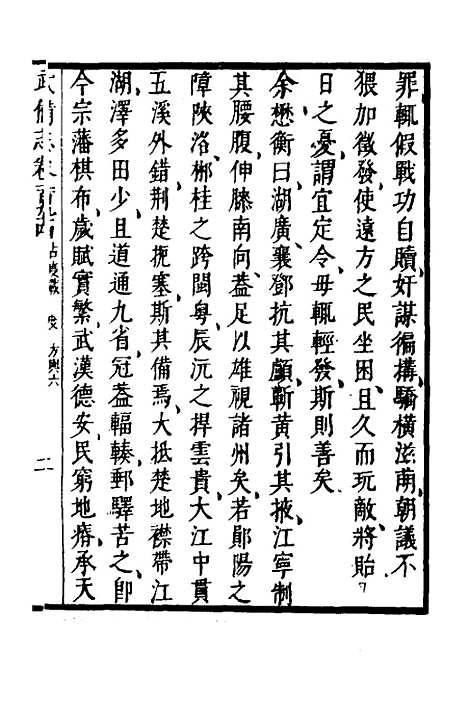 罪輒假戰功自贖奸謀徧搆驕橫滋甫朝議不
猥加徵發使遠方之民坐困且久而玩敵將貽
日之憂謂宜定令毋輒輕發斯則善矣
余懋衡曰湖廣襄鄧抗其顱蘄黃引其掖江寧制
其腰腹伸膝南向葢足以雄視諸州矣若鄖陽之
障陝洛郴桂之跨閩粵辰沅之捍雲貴大江中貫
五溪外錯荆楚扼塞斯其備焉大抵楚地襟帶江
湖澤多田少且道通九省冠葢輻輳郵驛苦之卽
今宗藩棋布歲賦實繁武漢德安民窮地瘠承天
武備志卷一百九十四 占度載 度 方輿六 二